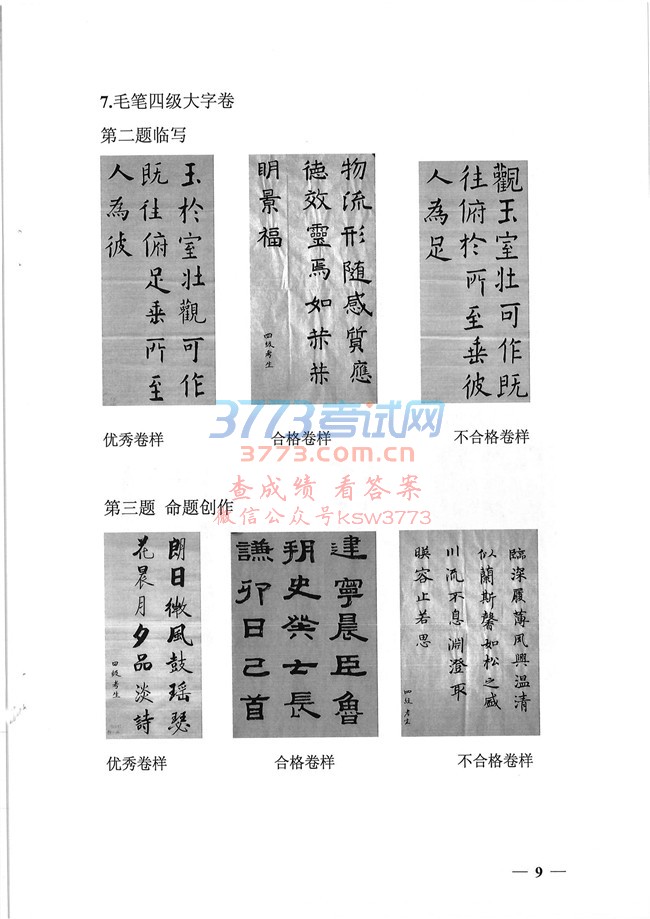 7.毛笔四级大字卷
第二题临写
玉於室壮觀可作
既往俯足垂所至
人為彼
物流形随感質應
徳效靈焉如恭恭
明景福
四级考生
觀玉室壮可作既
往俯於所至垂彼
人為足
3773考试网
3773.com.cn
优秀卷样
合格卷样
不合格卷样
查成绩 看答案
微信公众号ksw3773
第三题 命题创作
朗日微風鼓瑶瑟
花晨月夕品淡詩
四级考生
建寧晨臣魯
朔史癸士長
謙卯日己首
臨深履薄風興温清
似蘭斯馨如松之盛
川流不息淵澄取
暎容止若思
四级考生
优秀卷样
合格卷样
不合格卷样
— 9 —